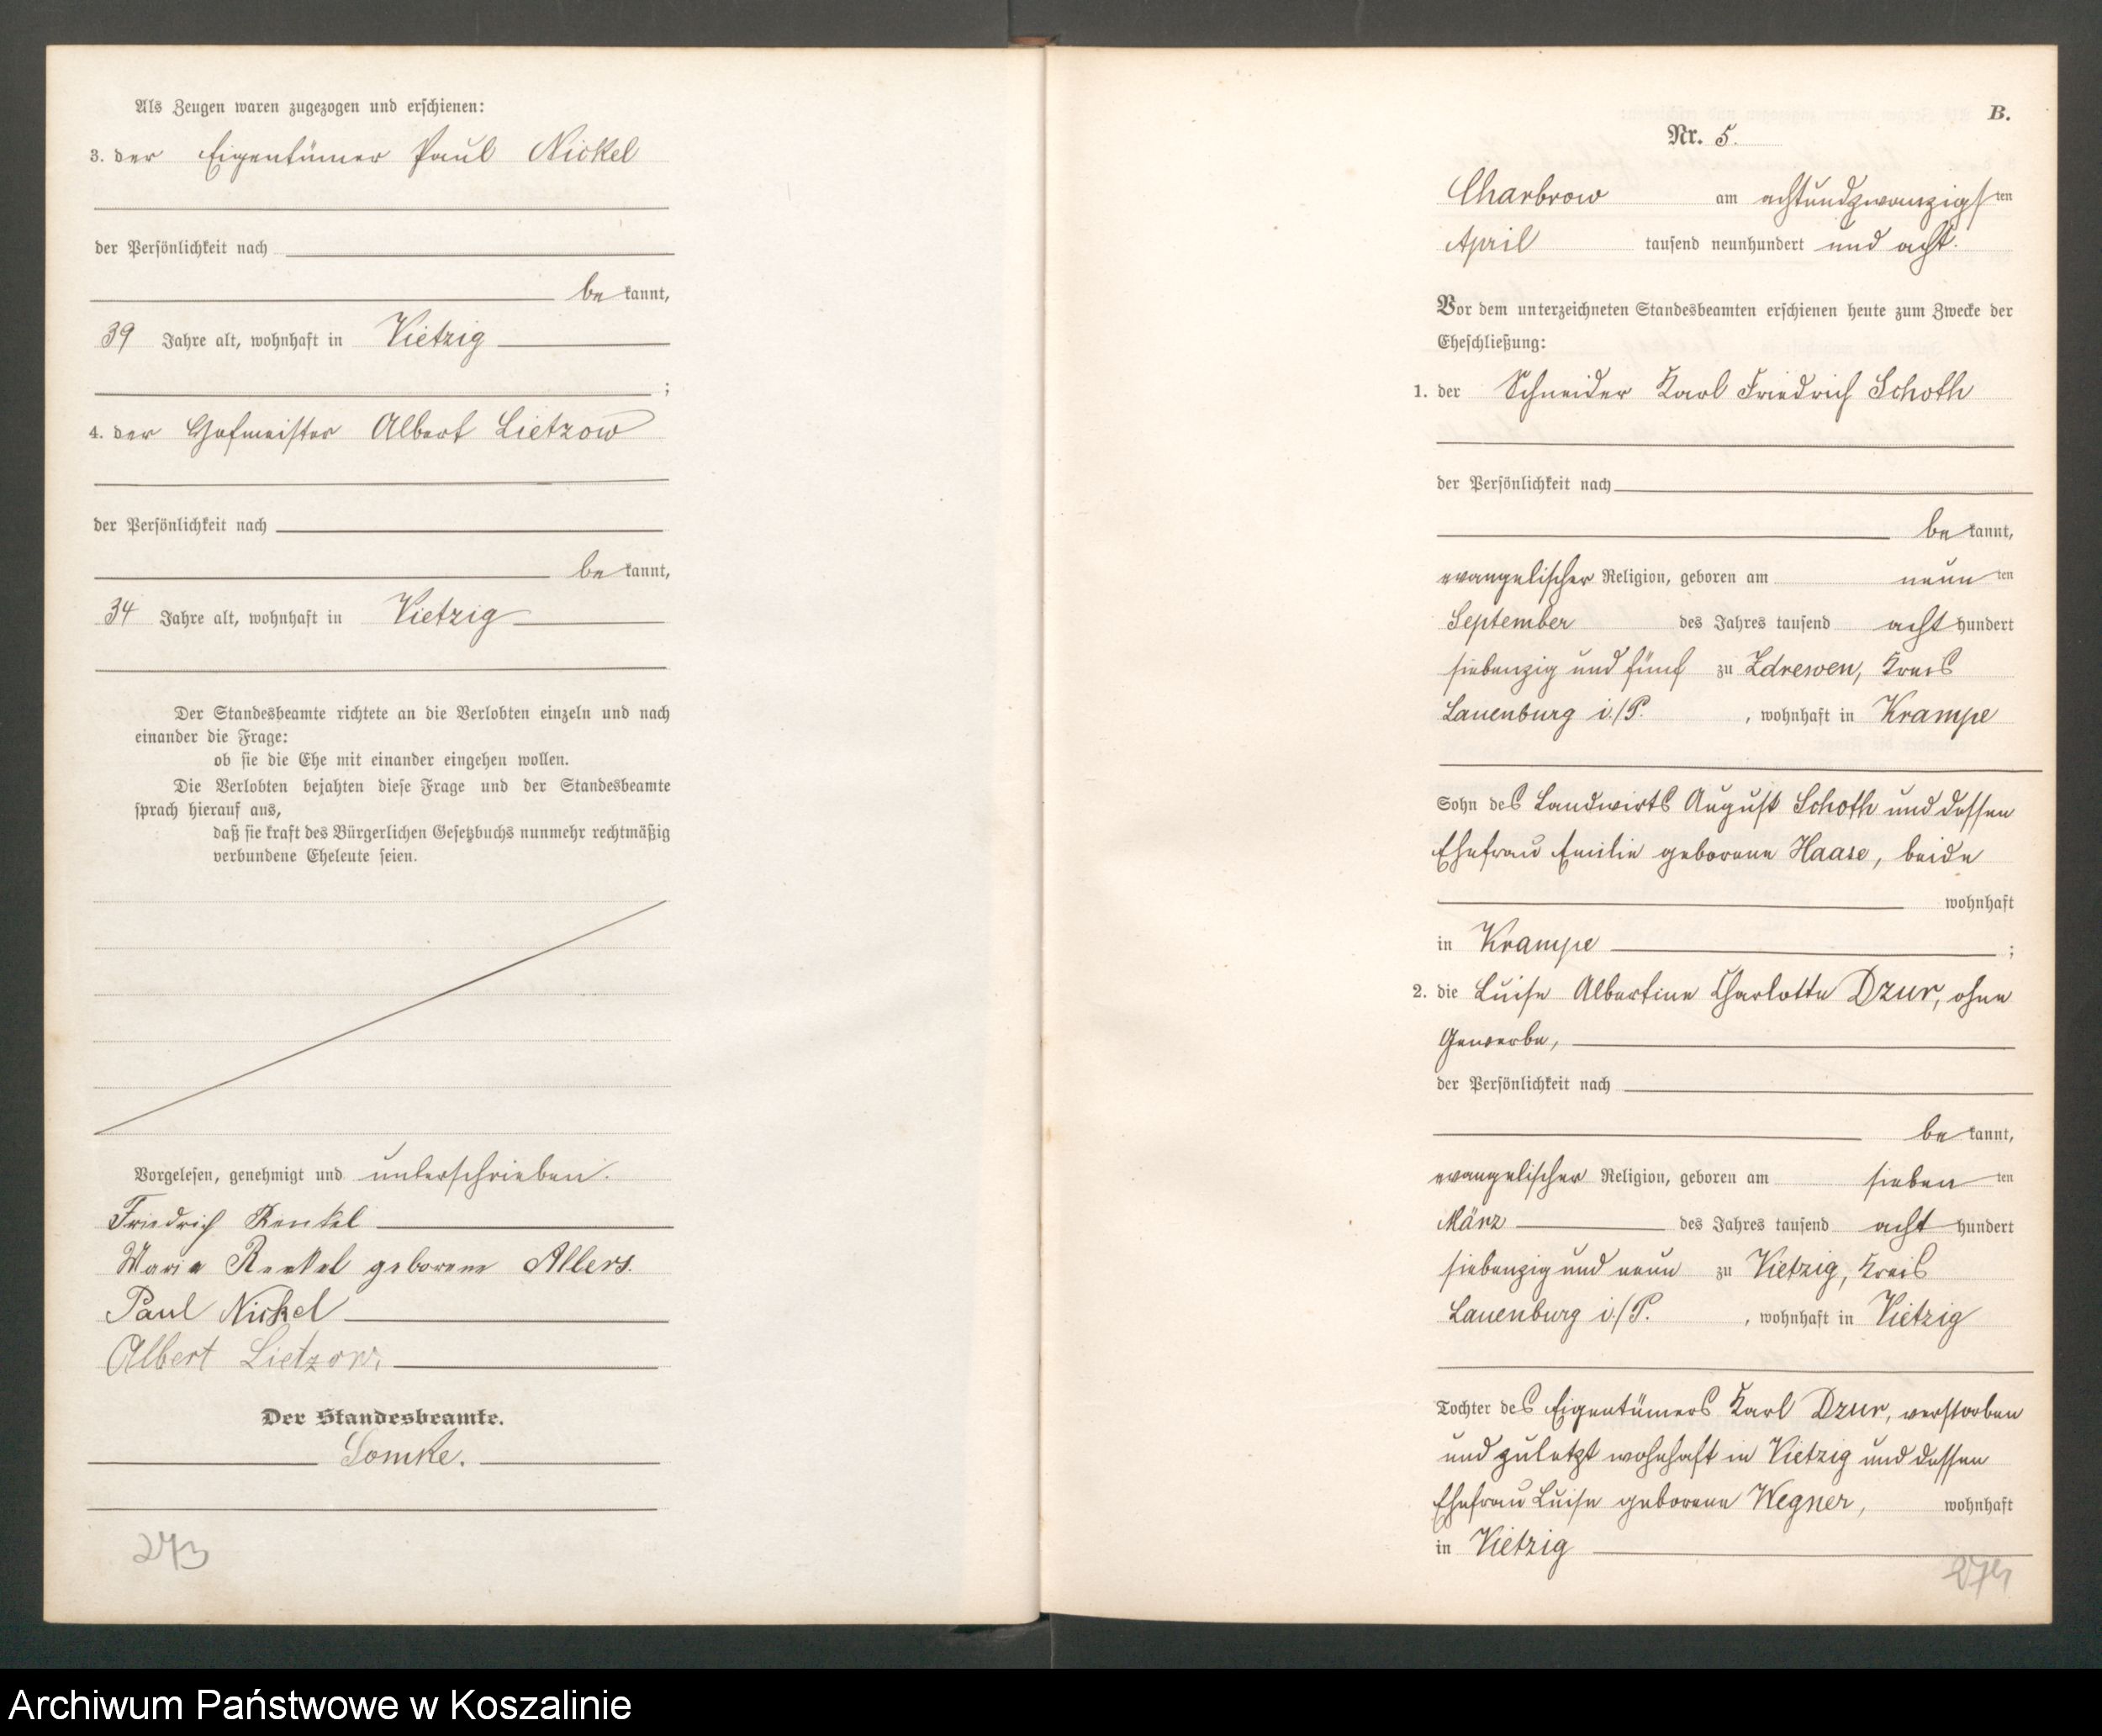 Als Zeugen waren zugezogen und erschienen:
3. der Eigentümer Paul Nickel
der Persönlichkeit nach
be kannt,
39 Jahre alt, wohnhaft in Vietzig
;
4. der Hofmeister Albert Lietzow
der Persönlichkeit nach
be kannt,
34 Jahre alt, wohnhaft in Vietzig
Der Standesbeamte richtete an die Verlobten einzeln und nach
einander die Frage:
ob sie die Ehe mit einander eingehen wollen.
Die Verlobten bejahten diese Frage und der Standesbeamte
sprach hierauf aus,
daß sie kraft des Bürgerlichen Gesetzbuchs nunmehr rechtmäßig
verbundene Eheleute seien.
Vorgelesen, genehmigt und unterschrieben.
Friedrich Renkel
Maria Renkel geborene Allers.
Paul Nickel
Albert Lietzow.
Der Standesbeamte.
Lomke.
273
B.
Nr. 5.
Charbrow am achtundzwanzigsten
April tausend neunhundert und acht.
Vor dem unterzeichneten Standesbeamten erschienen heute zum Zwecke der
Eheschließung:
1. der Schneider Karl Friedrich Schoth
der Persönlichkeit nach
be kannt,
evangelischer Religion, geboren am neun ten
September des Jahres tausend acht hundert
siebenzig und fünf zu Zdrewen, Kreis
Lauenburg i./P. , wohnhaft in Krampe
Sohn des Landwirts August Schoth und dessen
Ehefrau Emilie geborene Haase, beide
wohnhaft
in Krampe ;
2. die Luise Albertine Charlotte Dzur, ohne
Gewerbe,
der Persönlichkeit nach
be kannt,
evangelischer Religion, geboren am sieben ten
März des Jahres tausend acht hundert
siebenzig und neun zu Vietzig, Kreis
Lauenburg i./P. , wohnhaft in Vietzig
Tochter des Eigentümers Karl Dzur, verstorben
und zuletzt wohnhaft in Vietzig und dessen
Ehefrau Luise geborene Wegner, wohnhaft
in Vietzig
274
Archiwum Państwowe w Koszalinie